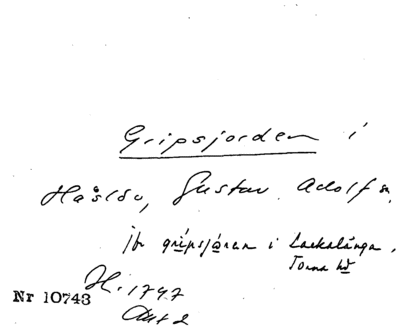 Gripsjorden i
Håslöv, Gustav Adolf sn.
jfr gripsjáran i Lackalänga,
Torna hd
H. 1747
Akt 2
Nr 10743